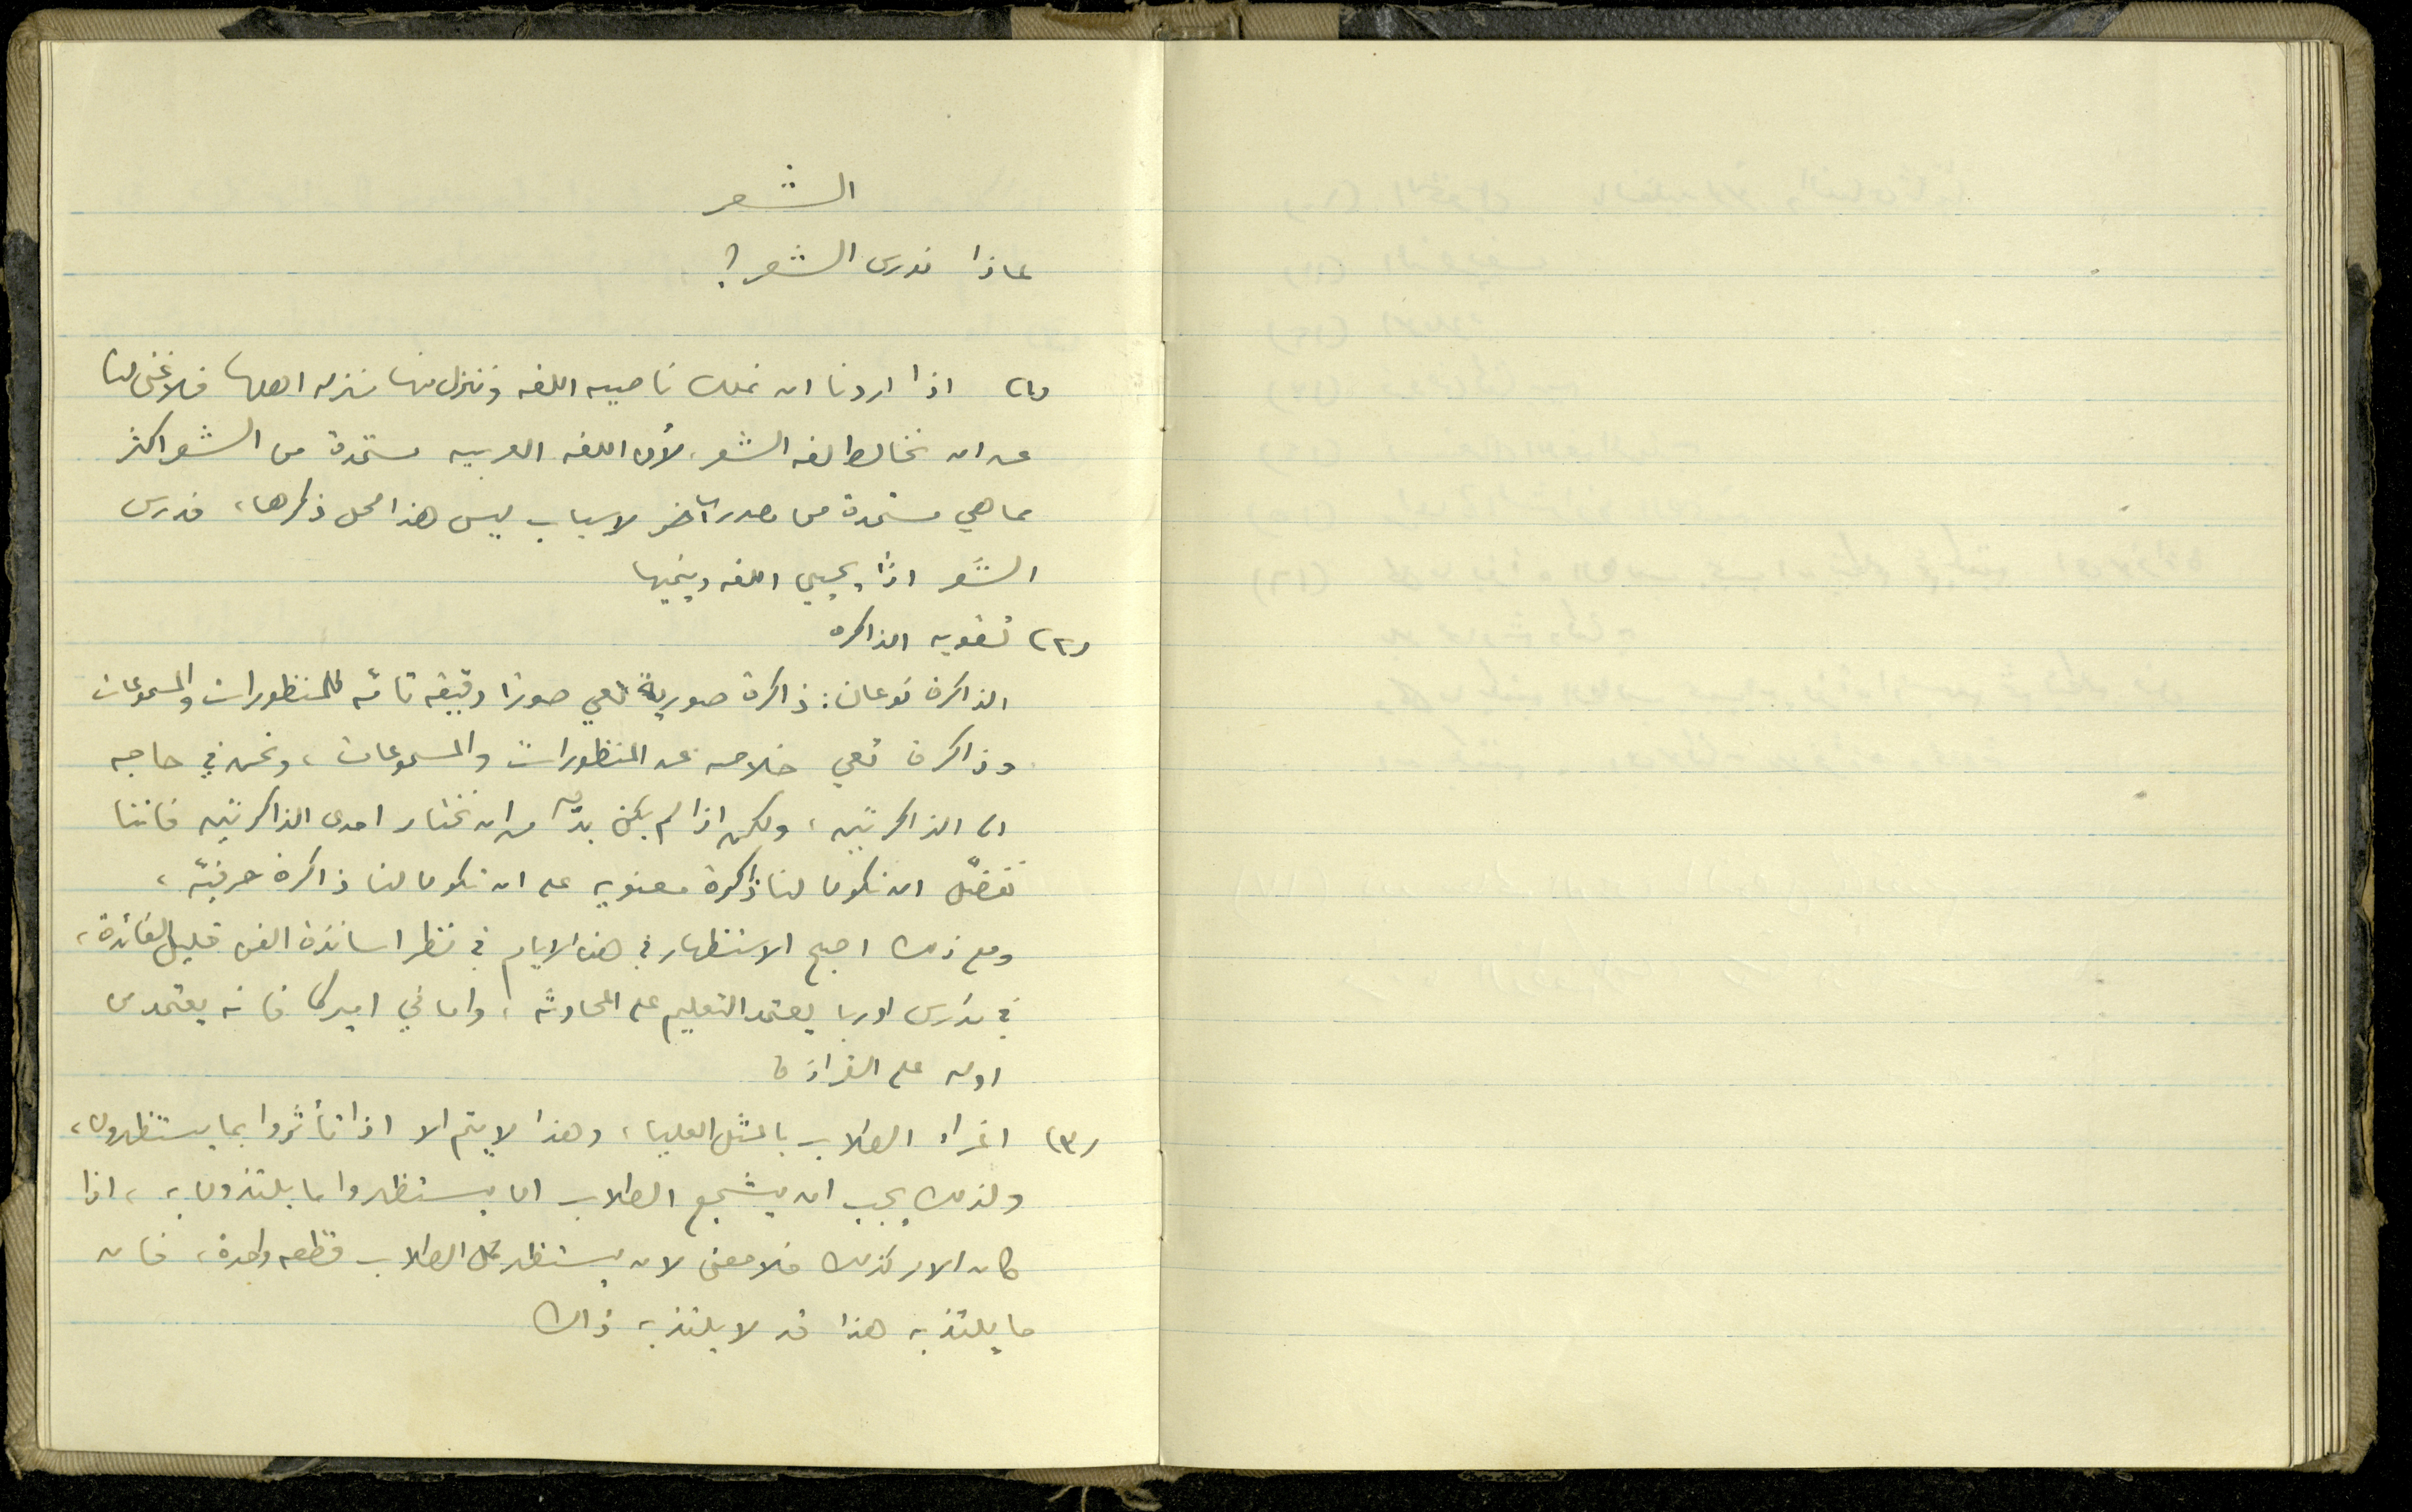 الشعر
لماذا ندرس الشعر؟
(١) اذا اردنا ان نملك ناصيه اللغه وننزل منها منزله اهلها فلا غنى لنا
عن ان نخالط لغه الشعر، لأن اللغه العربيه مستمدة من الشعر اكثر
مما هي مستمدة من مصدر آخر لاسباب ليس هذا محل ذكرها، فدرس
الشعر اذاً يحيي اللغه وينميها
(٢) تقويه الذاكره
الذاكرة نوعان: ذاكرة صورية تعي صورًا دقيقه تامّه للمنظورات والمسموعات
وذاكرة تعي خلاصه عن المنظورات والمسموعات، ونحن في حاجه
الى الذاكرتين، ولكن اذا لم يكن بدّ من ان نختار احدى الذاكرتين فاننا
نفضّل ان تكون لنا ذاكرة معنويه على ان تكون لنا ذاكرة حرفيّه،
ومع ذلك اصبح الاستظهار في هذه الايام في نظر اساتذة الفن قليل الفائدة،
في مدارس اوربا يعتمد التعليم على المحادثه، واما في اميركا فانه يعتمد من
اوله على القراءة
(٣) اغراء الطلاب بالمثل العليا، وهذا لا يتم الا اذا تأثروا بما يستظهرون،
ولذلك يجب ان يشجع الطلاب ان يستظهروا ما يلتذون به، اذا
كان الامر كذلك فلا معنى لان يستظهر كل الطلاب قطعه واحدة، فان
ما يلتذ به هذا قد لا يلتذ به ذاك